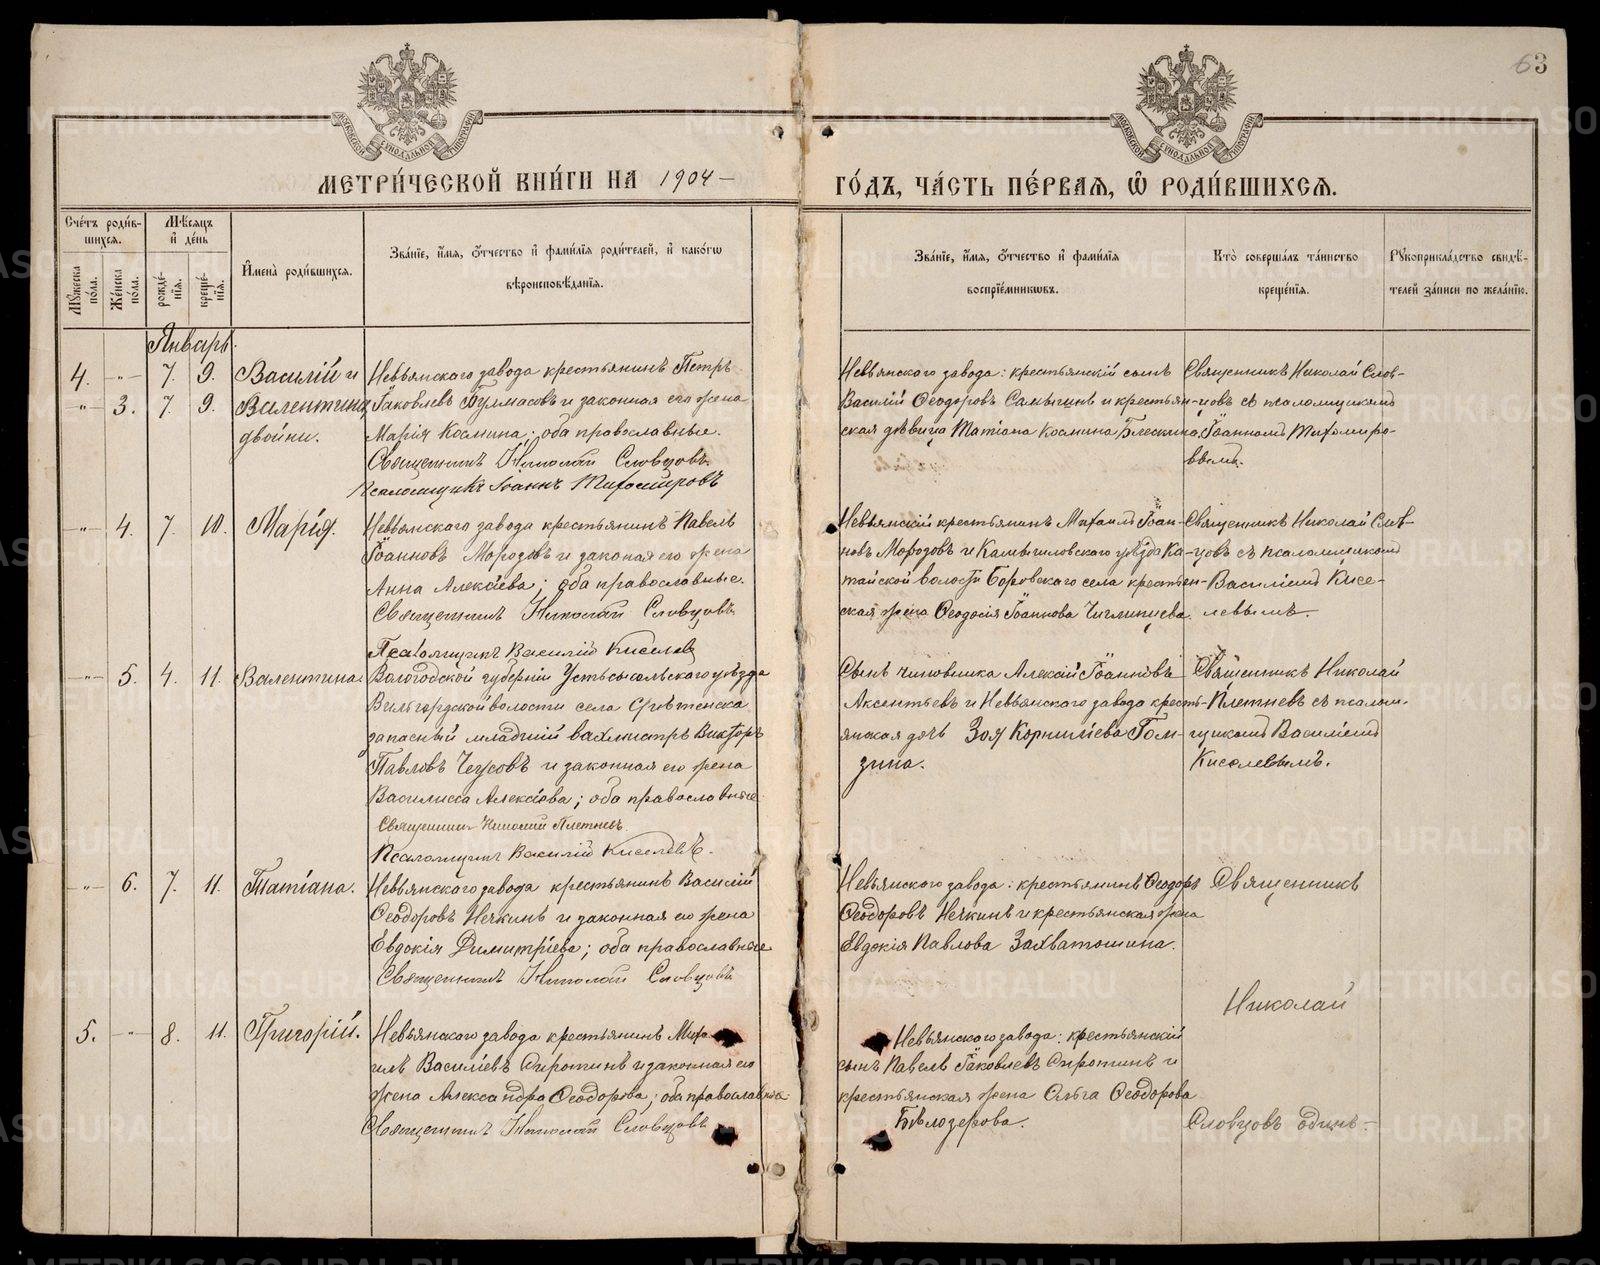 63
МЕТРИ́ЧЕСКОЙ КНИ́ГИ НА 1904 –
ГО́ДЪ, ЧА́СТЬ ПЕ́РВАЯ, Ѡ РОДИ́ВШИХСЯ.
Сче́тъ роди́в-
шихся.
Мѣ́сяцъ
и де́нь
Му́жеска
пола.
Же́нска
пола.
рожде́-
нія.
креще́-
нія.
Имена̀ роди́вшихся.
Зва́ніе, и́мя, о́тчество и фами́лія роди́телей, и како́гѡ
вѣроисповѣ́данія.
Зва́ніе, и́мя, о́тчество и фами́лія
воспріе́мниковъ.
Кто̀ соверша́лъ та́инство
креще́нія.
Рукоприкла́дство свидѣ́-
телей за́писи по жела́нію.
Январь.
4. -"- 7. 9. Василій и
-"- 3. 7. 9. Валентина
двойни.
Невьянскаго завода крестьянинъ Петръ
Іаковлевъ и законная его жена
Марія Космина; оба православные.
Священникъ Николай Словцовъ.
Псаломщикъ Іоаннъ Тихомировъ
Невьянскаго завода: крестьянскій сынъ
Василій Ѳеодоровъ и крестьян-
ская дѣвица Татіана Космина
Священникъ Николай Слов-
цовъ съ псаломщикомъ
Іоанномъ Тихомиро-
вымъ.
-"- 4. 7. 10. Марія.
Невьянскаго завода крестьянинъ Павелъ
Іоанновъ Морозовъ и законная его жена
Анна Алексіева; оба православные.
Священникъ Николай Словцовъ
Псаломщикъ Василій Киселевъ
Невьянскій крестьянинъ Михаилъ Іоан-
новъ Морозовъ и Камышловскаго уѣзда Ка-
тайской волости Боровскаго села крестьян-
ская жена Ѳеодосія Іоаннова
Священникъ Николай Слов-
цовъ съ псаломщикомъ
Василіемъ Кисе-
левымъ.
-"- 5. 4. 11. Валентина
Вологодской губерніи Устьсысольскаго уѣзда
Вильгордской волости села Срѣтенска
запасный младшій вахмистръ Викторъ
Павловъ Чеусовъ и законная его жена
Василисса Алексіева; оба православные.
Священникъ Николай Плетневъ.
Псаломщикъ Василій Киселевъ.
Сынъ чиновника Алексій Іоанновъ
Аксентьевъ и Невьянскаго завода кресть-
янская дочь Зоя Корниліева Гом-
зина.
Священникъ Николай
Плетневъ съ псалом-
щикомъ Василіемъ
Киселевымъ.
-"- 6. 7. 11. Татіана.
Невьянскаго завода крестьянинъ Василій
Ѳеодоровъ Нечкинъ и законная его жена
Евдокія Димитріева; оба православные
Священникъ Николай Словцовъ
Невьянскаго завода: крестьянинъ Ѳеодоръ
Ѳеодоровъ Нечкинъ и крестьянская жена
Евдокія Павлова Захватошина.
Священникъ
Николай
5. -"- 8. 11. Григорій.
Невьянскаго завода крестьянинъ Миха-
илъ Василіевъ Сиротинъ и законная его
жена Александра Ѳеодорова; оба православные
Священникъ Николай Словцовъ
Невьянскаго завода: крестьянскій
сынъ Павелъ Іаковлевъ Сиротинъ и
крестьянская жена Ольга Ѳеодорова
Бѣлозерова.
Словцовъ одинъ. –
METRIKI.GASO-URAL.RU